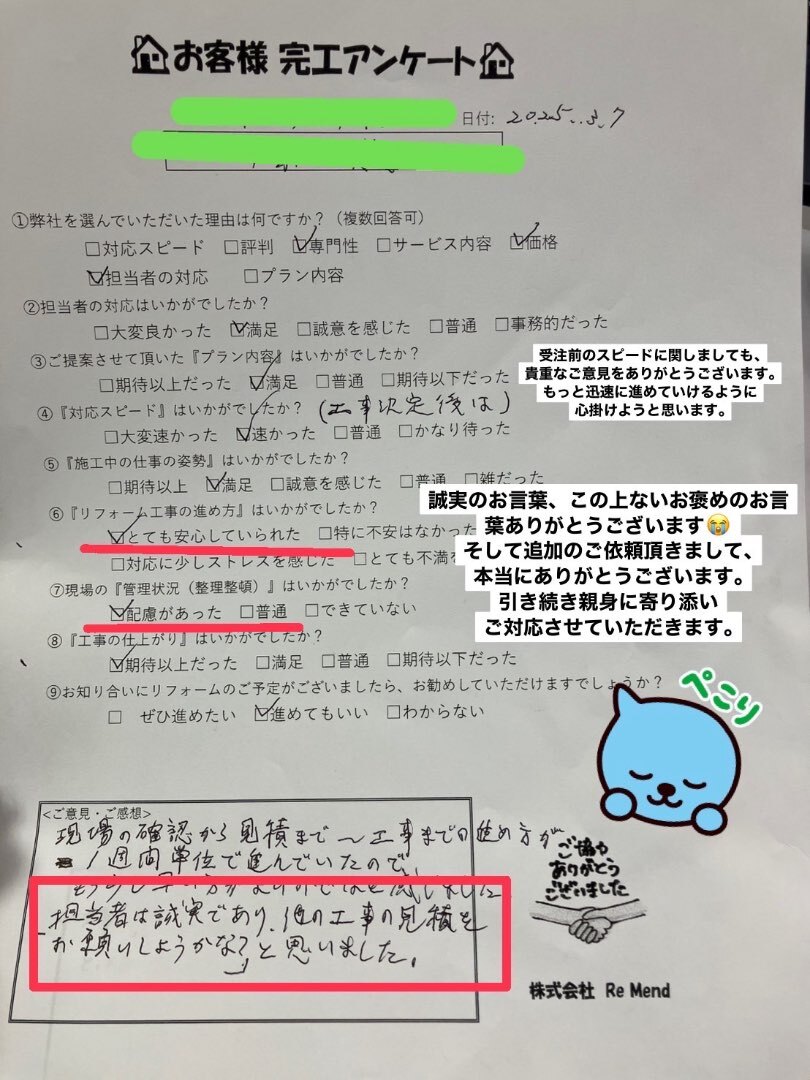 お客様 完工アンケート
日付: 2025.3.7
①弊社を選んでいただいた理由は何ですか？（複数回答可）
□対応スピード □評判 ☑専門性 □サービス内容 ☑価格
☑担当者の対応 □プラン内容
②担当者の対応はいかがでしたか？
□大変良かった ☑満足 □誠意を感じた □普通 □事務的だった
③ご提案させて頂いた『プラン内容』はいかがでしたか？
□期待以上だった ☑満足 □普通 □期待以下だった
④『対応スピード』はいかがでしたか？（工事決定後は）
□大変速かった ☑速かった □普通 □かなり待った
受注前のスピードに関しましても、
貴重なご意見をありがとうございます。
もっと迅速に進めていけるように
心掛けようと思います。
⑤『施工中の仕事の姿勢』はいかがでしたか？
□期待以上 ☑満足 □誠意を感じた □普通 □雑だった
⑥『リフォーム工事の進め方』はいかがでしたか？
☑とても安心していられた □特に不安はなかった
□対応に少しストレスを感じた □とても不満
⑦現場の『管理状況（整理整頓）』はいかがでしたか？
☑配慮があった □普通 □できていない
⑧『工事の仕上がり』はいかがでしたか？
☑期待以上だった □満足 □普通 □期待以下だった
⑨お知り合いにリフォームのご予定がございましたら、お勧めしていただけますでしょうか？
□ ぜひ進めたい ☑進めてもいい □わからない
誠実のお言葉、この上ないお褒めのお言
葉ありがとうございます😭
そして追加のご依頼頂きまして、
本当にありがとうございます。
引き続き親身に寄り添い
ご対応させていただきます。
ぺこり
<ご意見・ご感想>
現場の確認から見積まで〜工事までの進め方が
1週間単位で進んでいたので
もう少し早い方がよいのではと感じました
担当者は誠実であり、他の工事の見積を
お願いしようかな？と思いました。
ご協力
ありがとう
ございました
株式会社 Re Mend